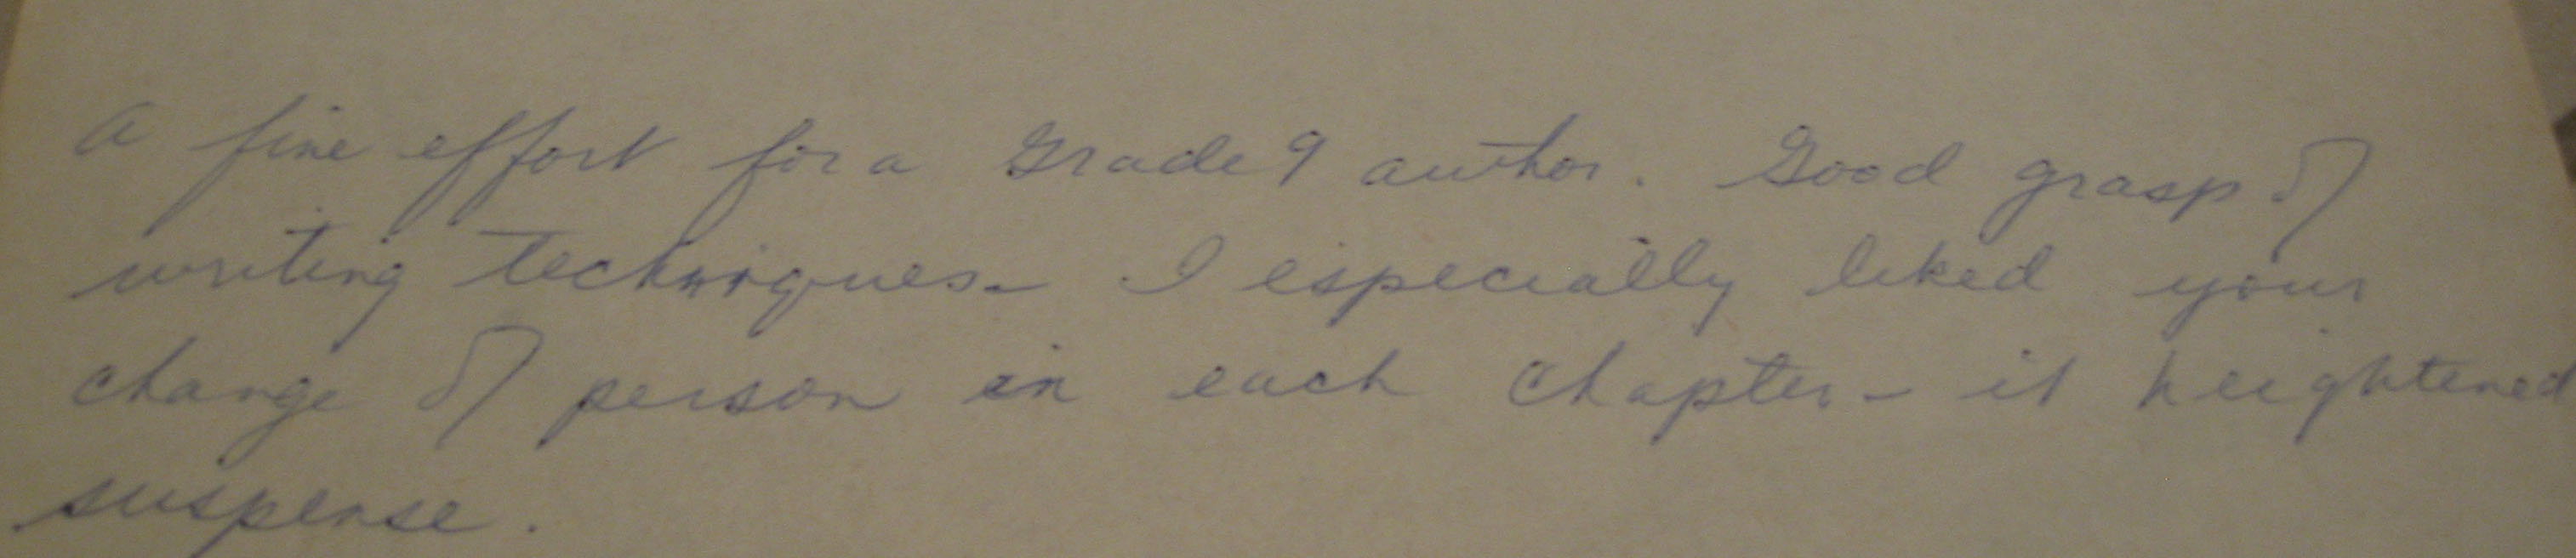 A fine effort for a Grade 9 author. Good grasp of
writing techniques. I especially liked your
change of person in each chapter - it heightened
suspense.